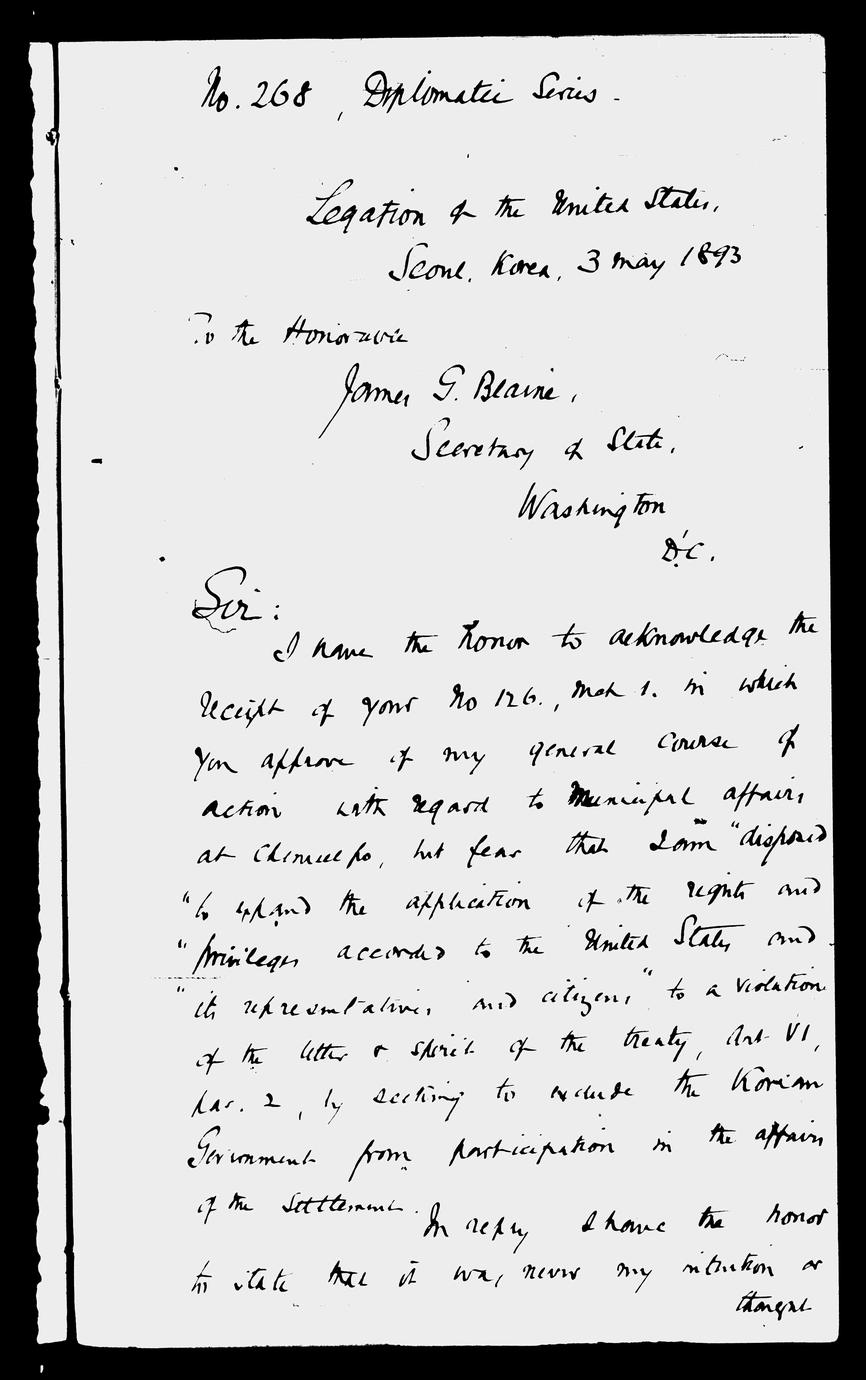 No. 268, Diplomatic Series -
Legation of the United States,
Seoul, Korea, 3 May 1893
To the Honorable
James G. Blaine,
Secretary of State,
Washington
D.C.
Sir:
I have the honor to acknowledge the
receipt of your No 126., Mch 1. in which
you approve of my general course of
action with regard to Municipal affairs
at Chemulpo, but fear that I am "disposed
"to expand the application of the rights and
"privileges accorded to the United States and
"its representatives and citizens" to a violation
of the letter & spirit of the treaty, Art VI,
par. 2, by seeking to exclude the Korean
Government from participation in the affairs
of the Settlement.
In reply I have the honor
to state that it was never my intention or
thought